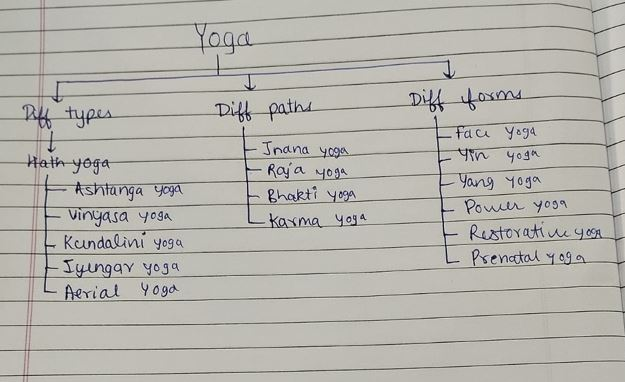 Yoga
Diff types
Hath yoga
Ashtanga yoga
Vinyasa yoga
Kundalini yoga
Iyengar yoga
Aerial Yoga
Diff paths
Jnana yoga
Raja yoga
Bhakti yoga
Karma yoga
Diff forms
Face yoga
Yin yoga
Yang yoga
Power yoga
Restorative yoga
Prenatal yoga